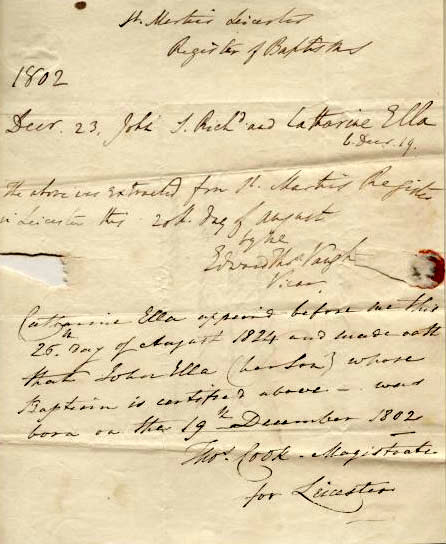 St. Martin's Leicester
Register of Baptisms
1802
Decr. 23. John S. Richd and Catharine Ella
b. Decr. 19.
The above was extracted from St. Martin's Register
in Leicester this 20th day of August
by me
Edward Thos Vaughn
Vicar
Catharine Ella appeared before me this
26th day of August 1824 and made oath
that John Ella (her Son) whose
Baptism is certified above - was
born on the 19th December 1802
Thos. Cook - Magistrate
for Leicester